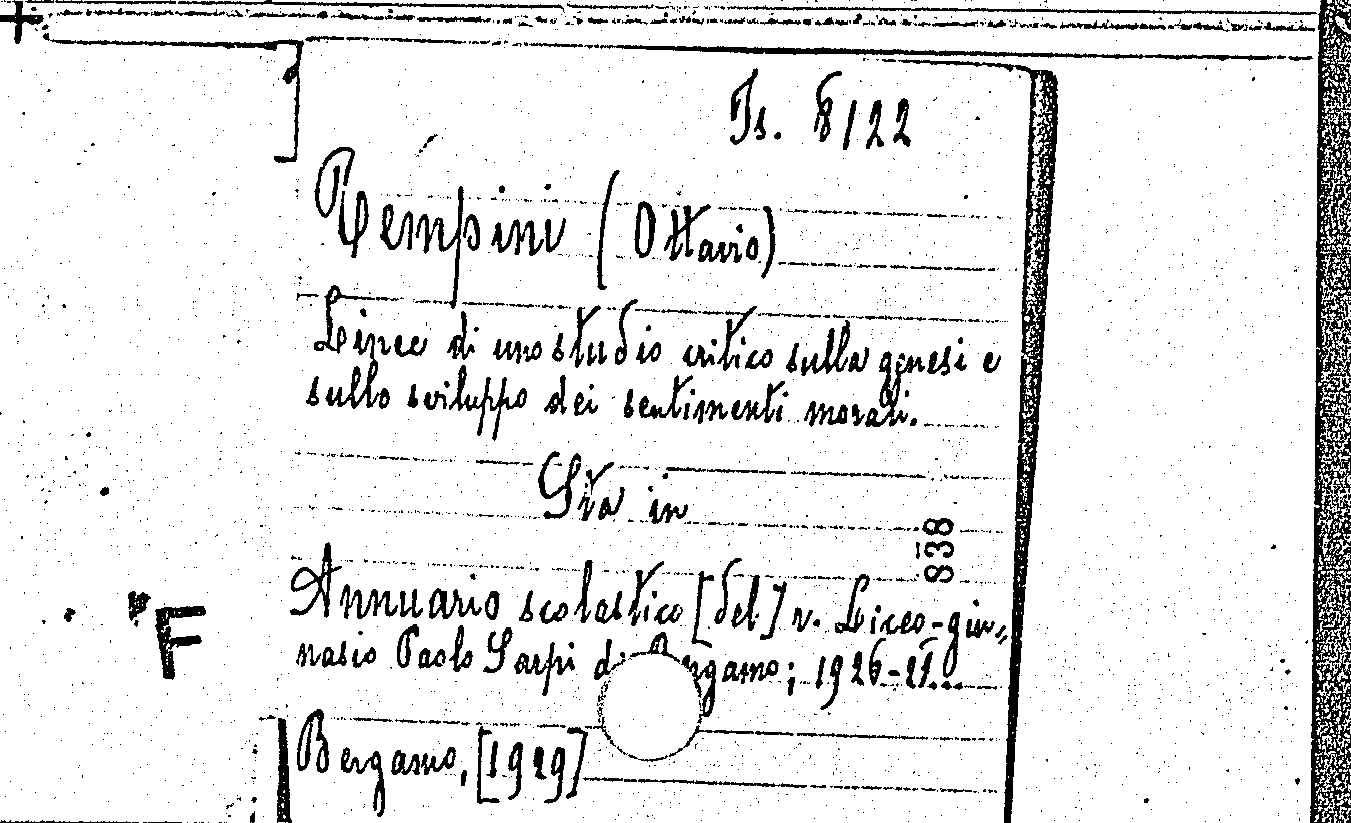 Is. 8/22
Tempini (Ottavio)
Linee di uno studio critico sulla genesi e
sullo sviluppo dei sentimenti morali.
Sta in
838
Annuario scolastico [del] r. Liceo-gin„
nasio Paolo Sarpi di Bergamo; 1926-27...
Bergamo, [1929]
"F